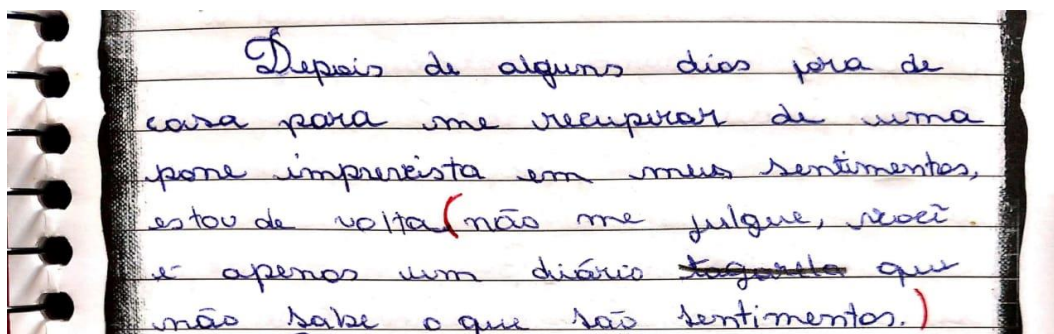 Depois de alguns dias fora de
casa para me recuperar de uma
pane imprevista em meus sentimentos,
estou de volta (não me julgue, você
é apenas um diário tagarela que
não sabe o que são sentimentos.)